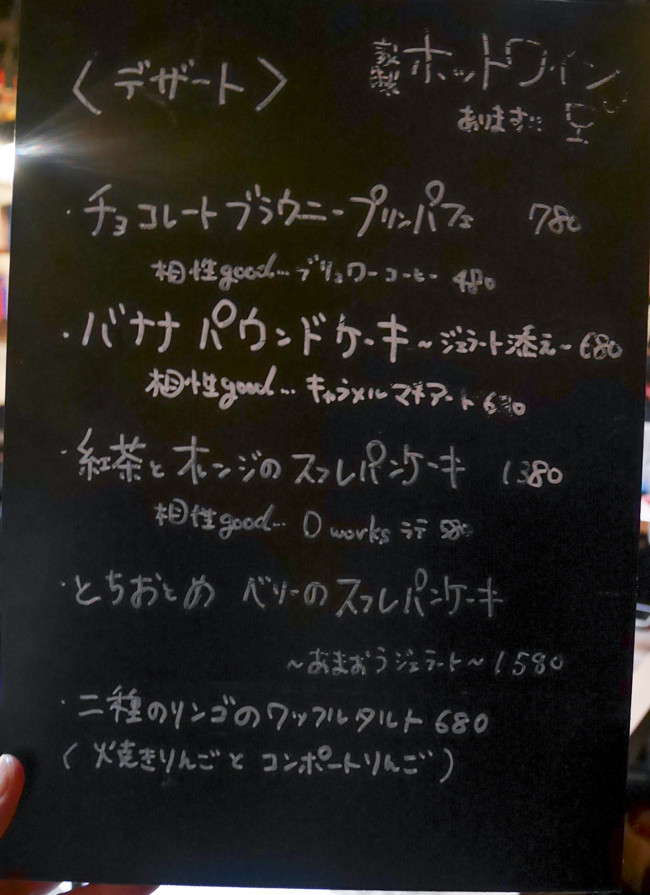 〈デザート〉
自家製ホットワイン
あります!!
・チョコレートブラウニープリンパフェ 780
相性good… ブリュワーコーヒー 480
・バナナパウンドケーキ ～ジェラート添え～ 680
相性good… キャラメルマキアート
・紅茶とオレンジのスフレパンケーキ 1380
相性good… D works ラテ 580
・とちおとめ ベリーのスフレパンケーキ
～あまおうジェラート～ 1580
・二種のリンゴのワッフルタルト 680
(焼きりんごとコンポートりんご)